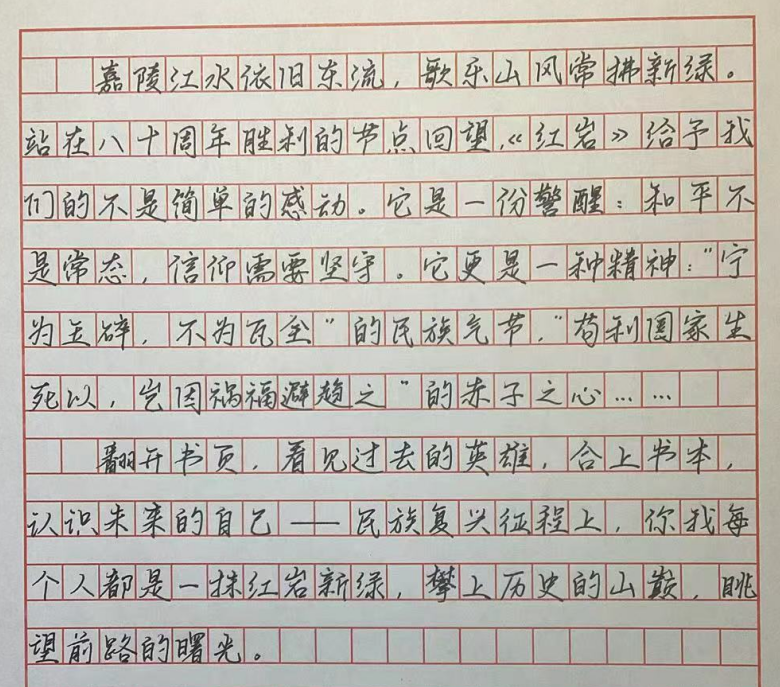 嘉陵江水依旧东流，歌乐山风常拂新绿。
站在八十周年胜利的节点回望，《红岩》给予我
们的不是简单的感动。它是一份警醒：和平不
是常态，信仰需要坚守。它更是一种精神："宁
为玉碎，不为瓦全"的民族气节，"苟利国家生
死以，岂因祸福避趋之"的赤子之心……
翻开书页，看见过去的英雄，合上书本，
认识未来的自己——民族复兴征程上，你我每
个人都是一抹红岩新绿，攀上历史的山巅，眺
望前路的曙光。